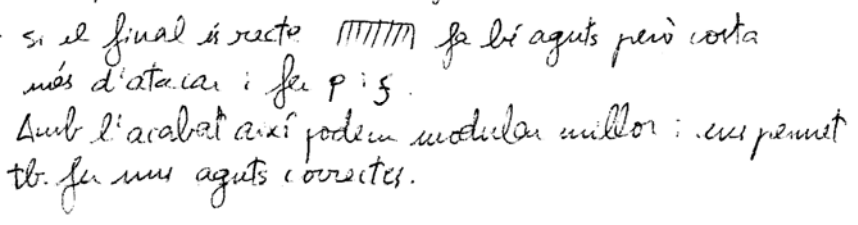 - si el final és recte fa bé aguts però costa
més d'atacar i fer p i f.
Amb l'acabat així podem modular millor i ens permet
tb. fer uns aguts correctes.